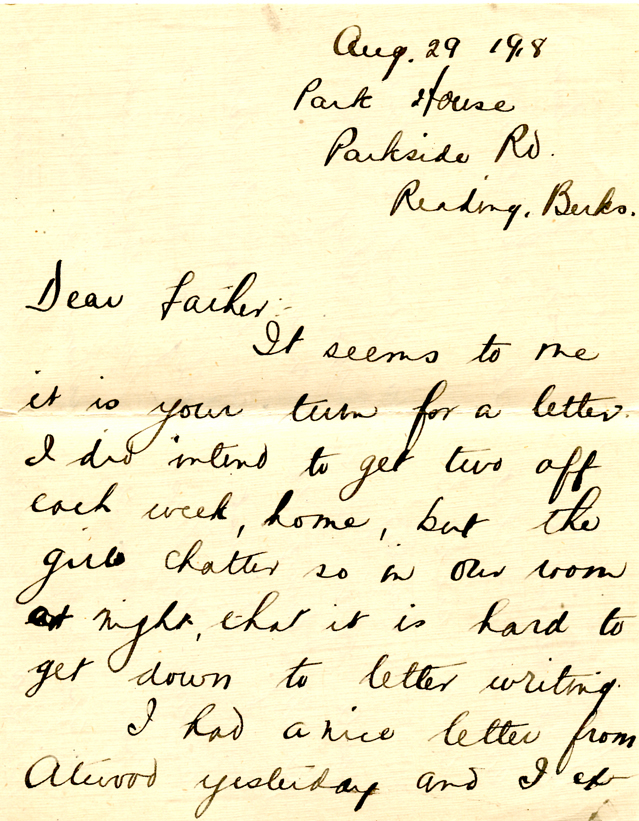 Aug. 29 1918
Park House
Parkside Rd.
Reading, Berks.
Dear Father:-
It seems to me
it is your turn for a letter.
I did intend to get two off
each week, home, but the
girls chatter so in our room
at night, that it is hard to
get down to letter writing.
I had a nice letter from
Atwood yesterday and I ex